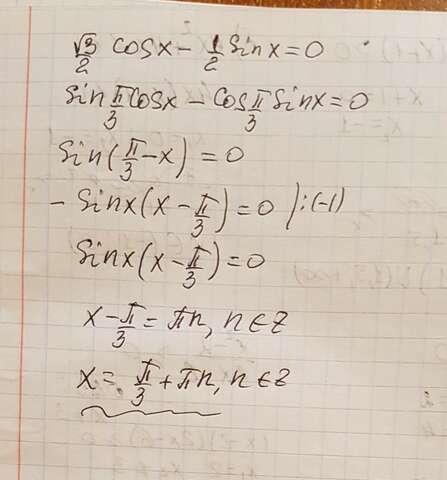 √3/2 cosx - 1/2 sinx = 0
sin π/3 cosx - cos π/3 sinx = 0
sin(π/3 - x) = 0
- sinx(x - π/3) = 0 /:(-1)
sinx(x - π/3) = 0
x - π/3 = πn, n ∈ z
x = π/3 + πn, n ∈ z